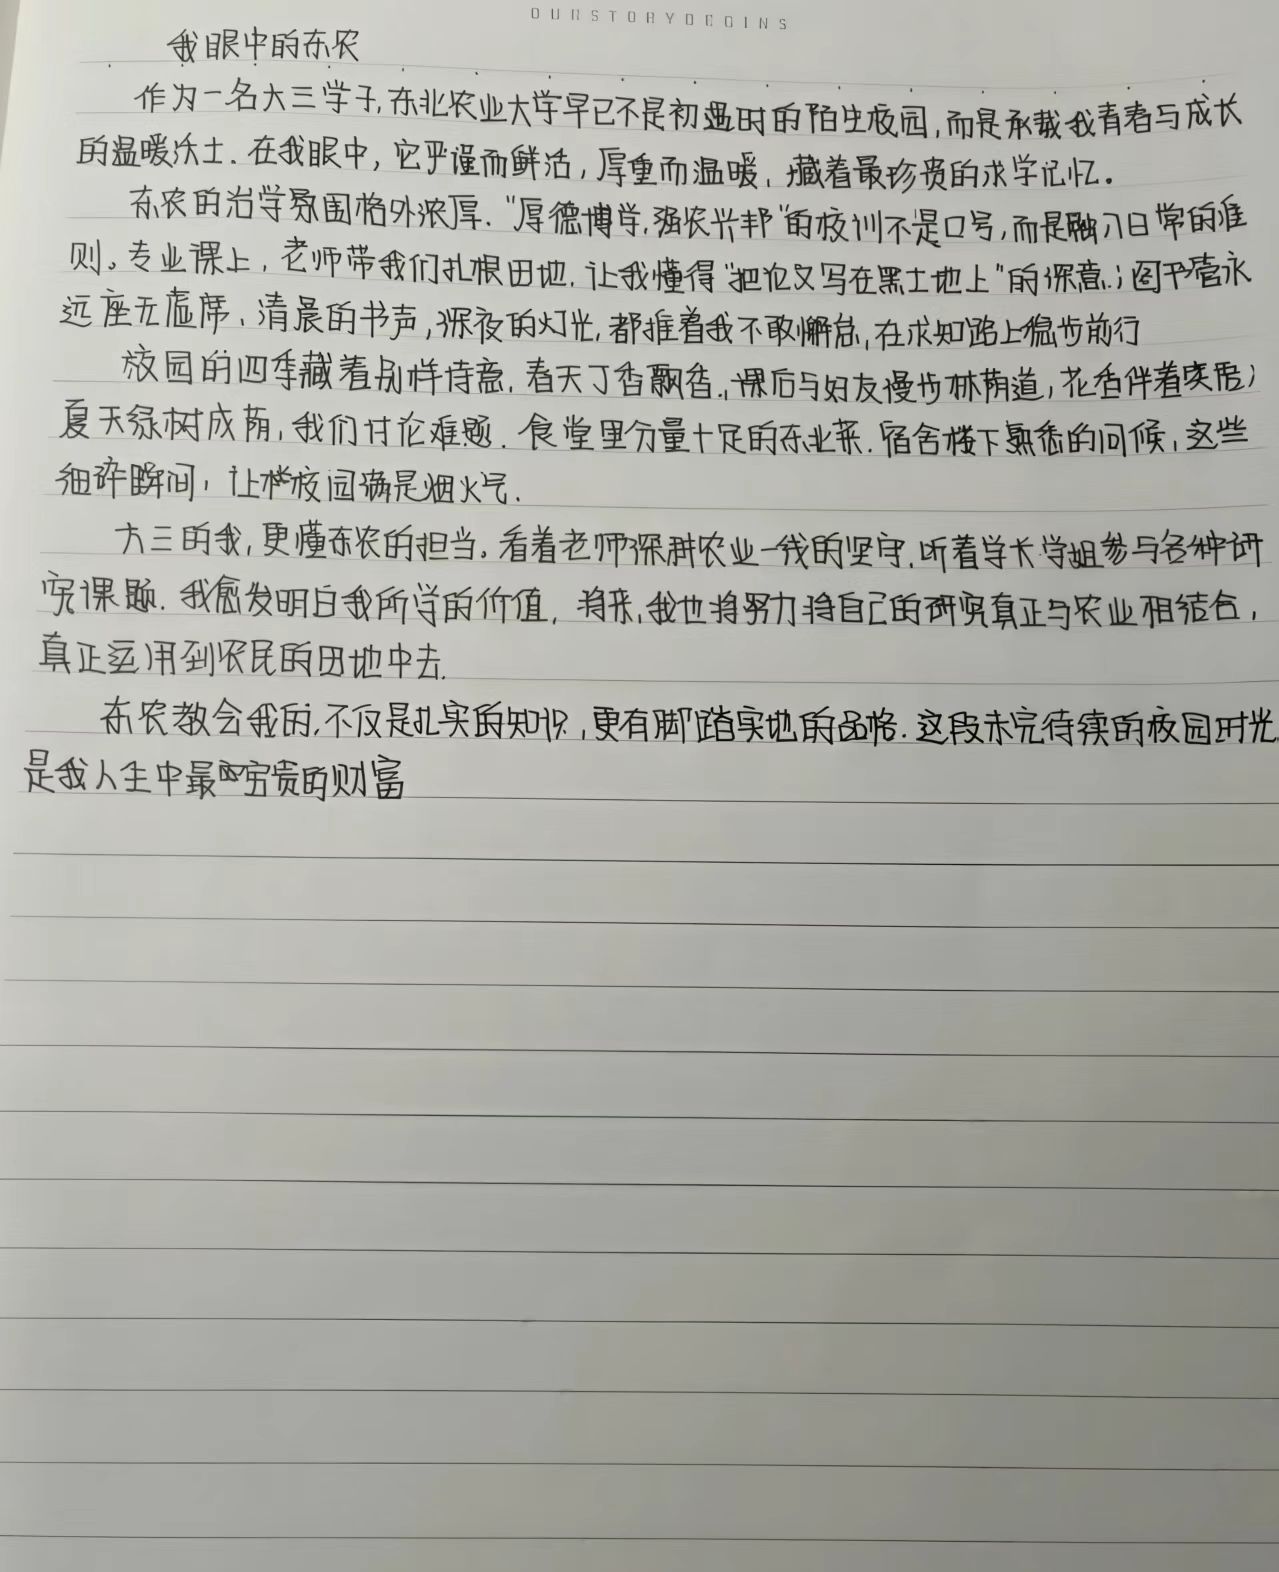 OURSTORYBEGINS
我眼中的东农
作为一名大三学子,东北农业大学早已不是初遇时的陌生校园,而是承载我青春与成长
的温暖沃土.在我眼中,它严谨而鲜活,厚重而温暖、藏着最珍贵的求学记忆。
东农的治学氛围格外浓厚.“厚德博学,强农兴邦”的校训不是口号,而是融入日常的准
则。专业课上,老师带我们扎根田地.让我懂得“把论文写在黑土地上”的深意.;图书馆永
远座无虚席、清晨的书声,深夜的灯光,都推着我不敢懈怠,在求知路上稳步前行
校园的四季藏着别样诗意.春天丁香飘香.,课后与好友漫步林荫道,花香伴着笑语;
夏天绿树成荫,我们讨论难题.食堂里分量十足的东北菜.宿舍楼下熟悉的问候,这些
细碎瞬间,让校园满是烟火气.
大三的我,更懂东农的担当。看着老师深耕农业一线的坚守.听着学长学姐参与各种研
究课题.我愈发明白我所学的价值,将来,我也将努力将自己的研究真正与农业相结合,
真正运用到农民的田地中去.
东农教会我的,不仅是扎实的知识,更有脚踏实地的品格.这段未完待续的校园时光
是我人生中最宝贵的财富